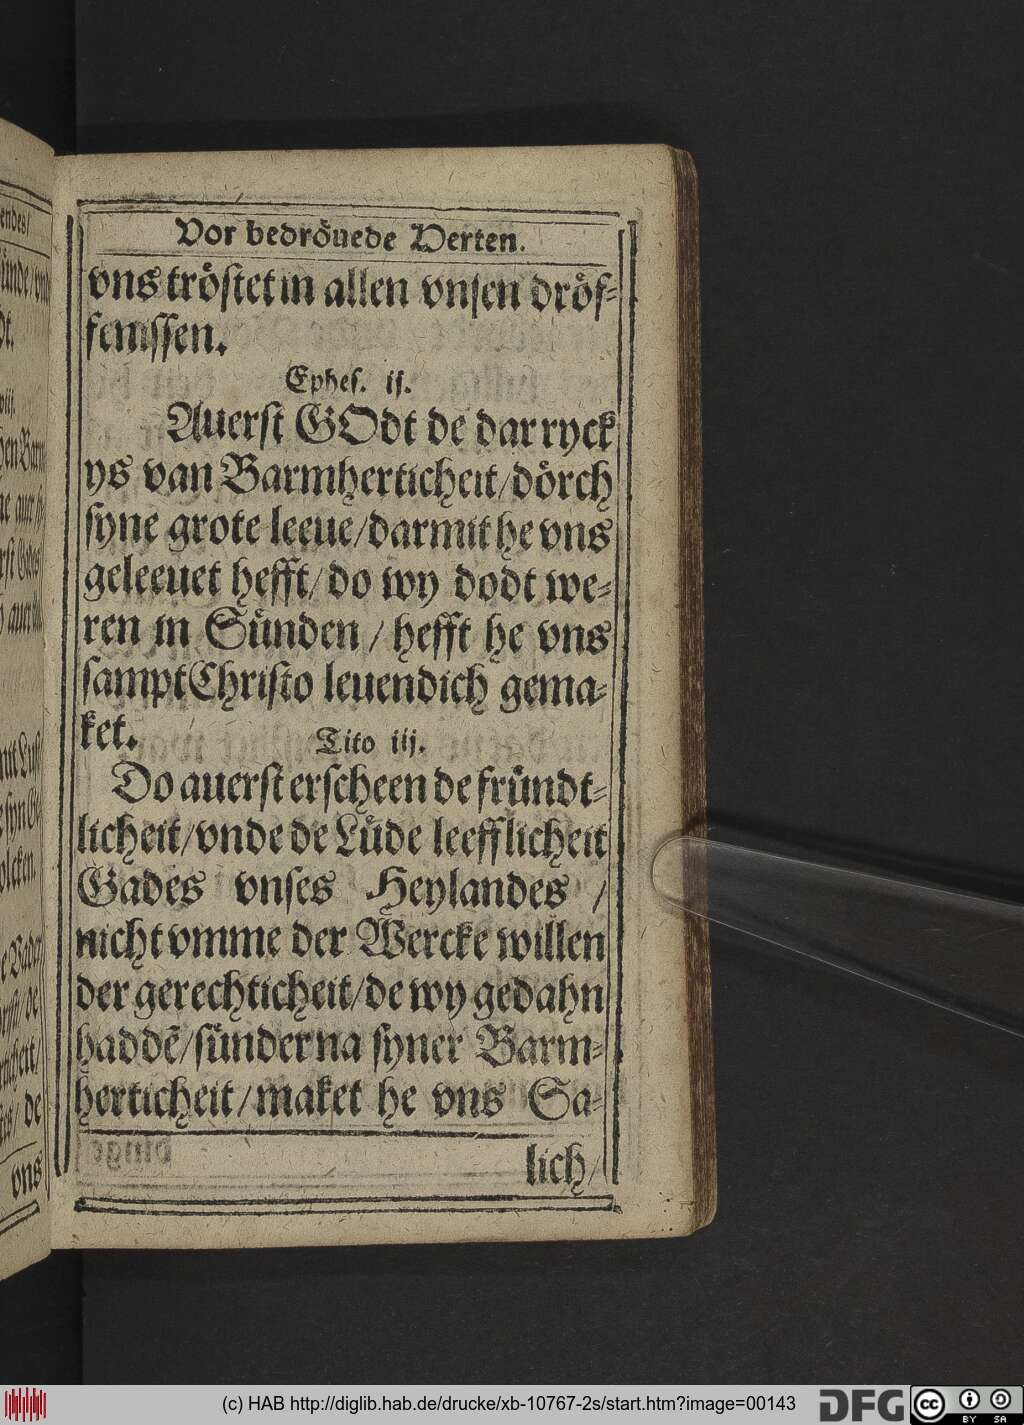 Vor bedröuede Herten.
vns tröstet in allen vnsen dröf⸗
fenissen.
Ephes. ij.
Auerst GOdt de dar ryck
ys van Barmherticheit/dörch
syne grote leeue/darmit he vns
geleeuet hefft/do wy dodt we⸗
ren in Sünden/hefft he vns
sampt Christo leuendich gema⸗
ket.
Tito iij.
Do auerst erscheen de fründt⸗
licheit/vnde de Lüde leefflicheit
Gades vnses Heylandes /
nicht vmme der Wercke willen
der gerechticheit/de wy gedahn
haddē/sünder na syner Barm⸗
herticheit/maket he vns Sa⸗
lich/
vns
(c) HAB http://diglib.hab.de/drucke/xb-10767-2s/start.htm?image=00143
DFG
cc
BY SA